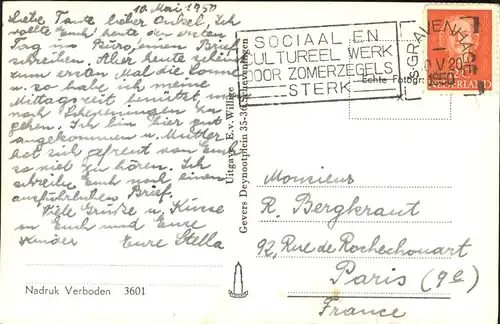 10. Mai 1950
Liebe Tante lieber Onkel, Ich
wollte Euch heute den ersten
Tag im Büro, einen Brief
schreiben. Aber heute schien
zum ersten Mal die Sonne
u. so habe ich meine
Mittagszeit benützt um
nach Scheveningen zu
gehen. Ich bin hier gut
angekommen u. Mutter
hat sich gefreut von Euch
so viel zu hören. Ich
schreibe Euch noch einen
ausführlichen Brief.
Viele Grüße u. Küsse
an Euch und Eure
Kinder Eure Stella
Nadruk Verboden 3601
Uitgave E. v. Willige
Gevers Deynootplein 35-36 Scheveningen
SOCIAAL EN
CULTUREEL WERK
DOOR ZOMERZEGELS
STERK
'S GRAVENHAGE
1950
NEDERLAND
Echte Fotogr.
Monsieur
R. Bergkraut
92, Rue de Rochechouart
Paris (9e)
France